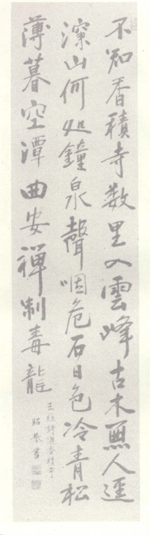 不知香積寺数里入雲峰古木無人逕
深山何処鐘泉聲咽危石日色冷青松
薄暮空潭曲安禪制毒龍
王維詩過香積寺
書